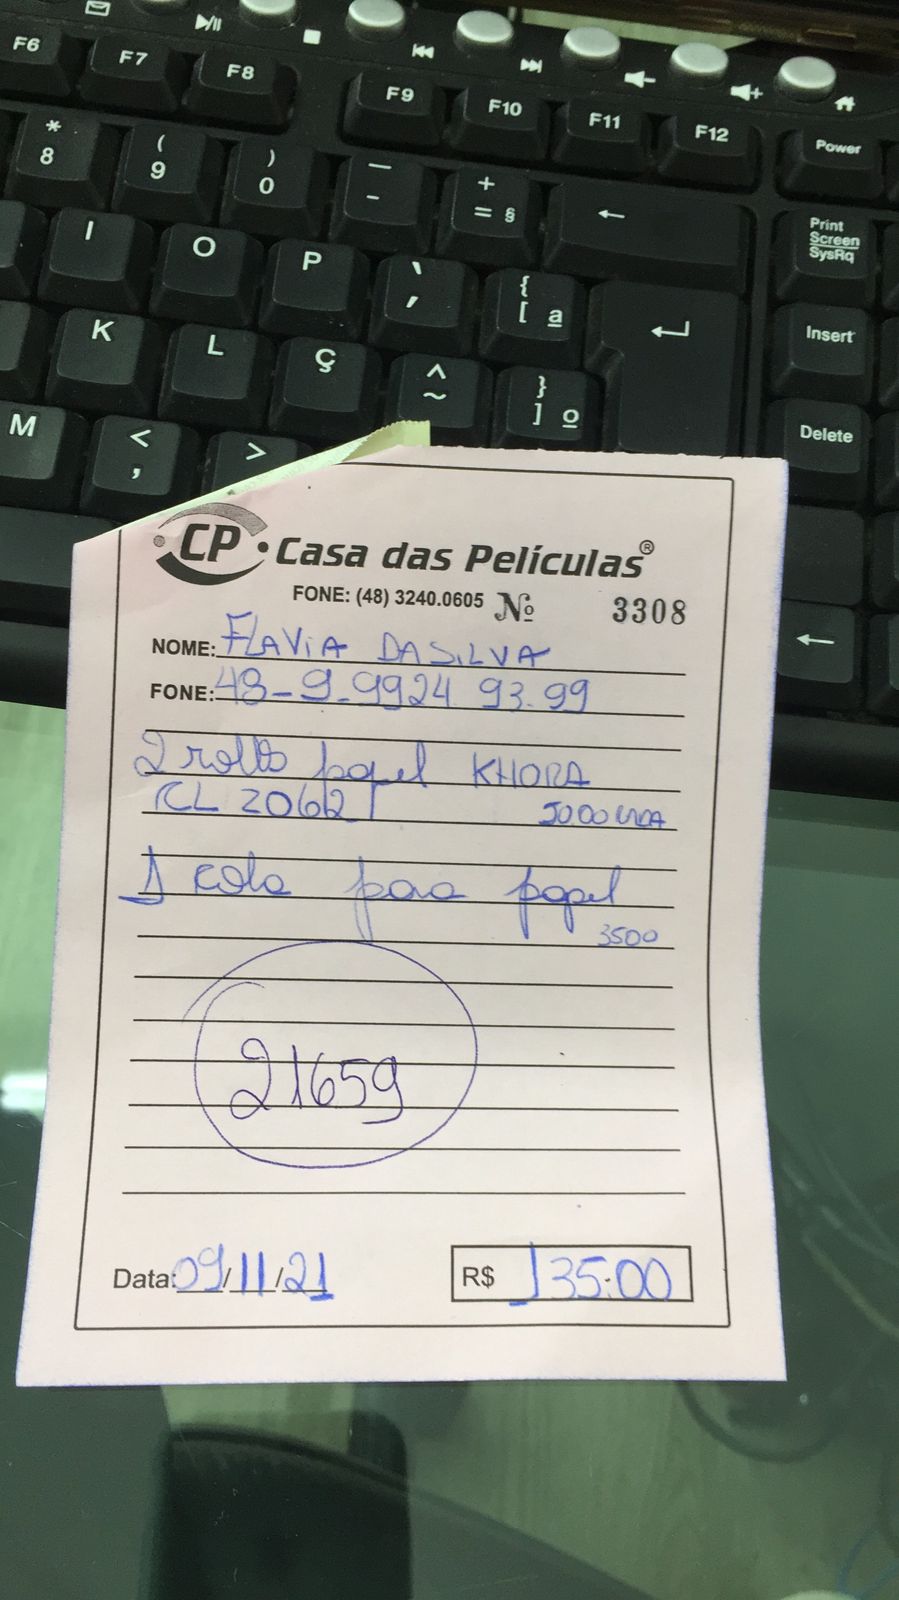 F6 F7 F8 F9 F10 F11 F12 Power
* 8 ( 9 ) 0 — - + = § ←
Print Screen SysRq
I O P ` ´ { [ ª
Insert
K L Ç ^ ~ } ] º
Delete
M < , >
CP Casa das Películas®
FONE: (48) 3240.0605 Nº 3308
NOME: FLAVIA DA SILVA
FONE: 48-9-9924.93.99
2 rollo papel KHORA
CL 2062
5000 CADA
1 cola para papel
3500
21659
Data: 09/11/21 R$ 135.00